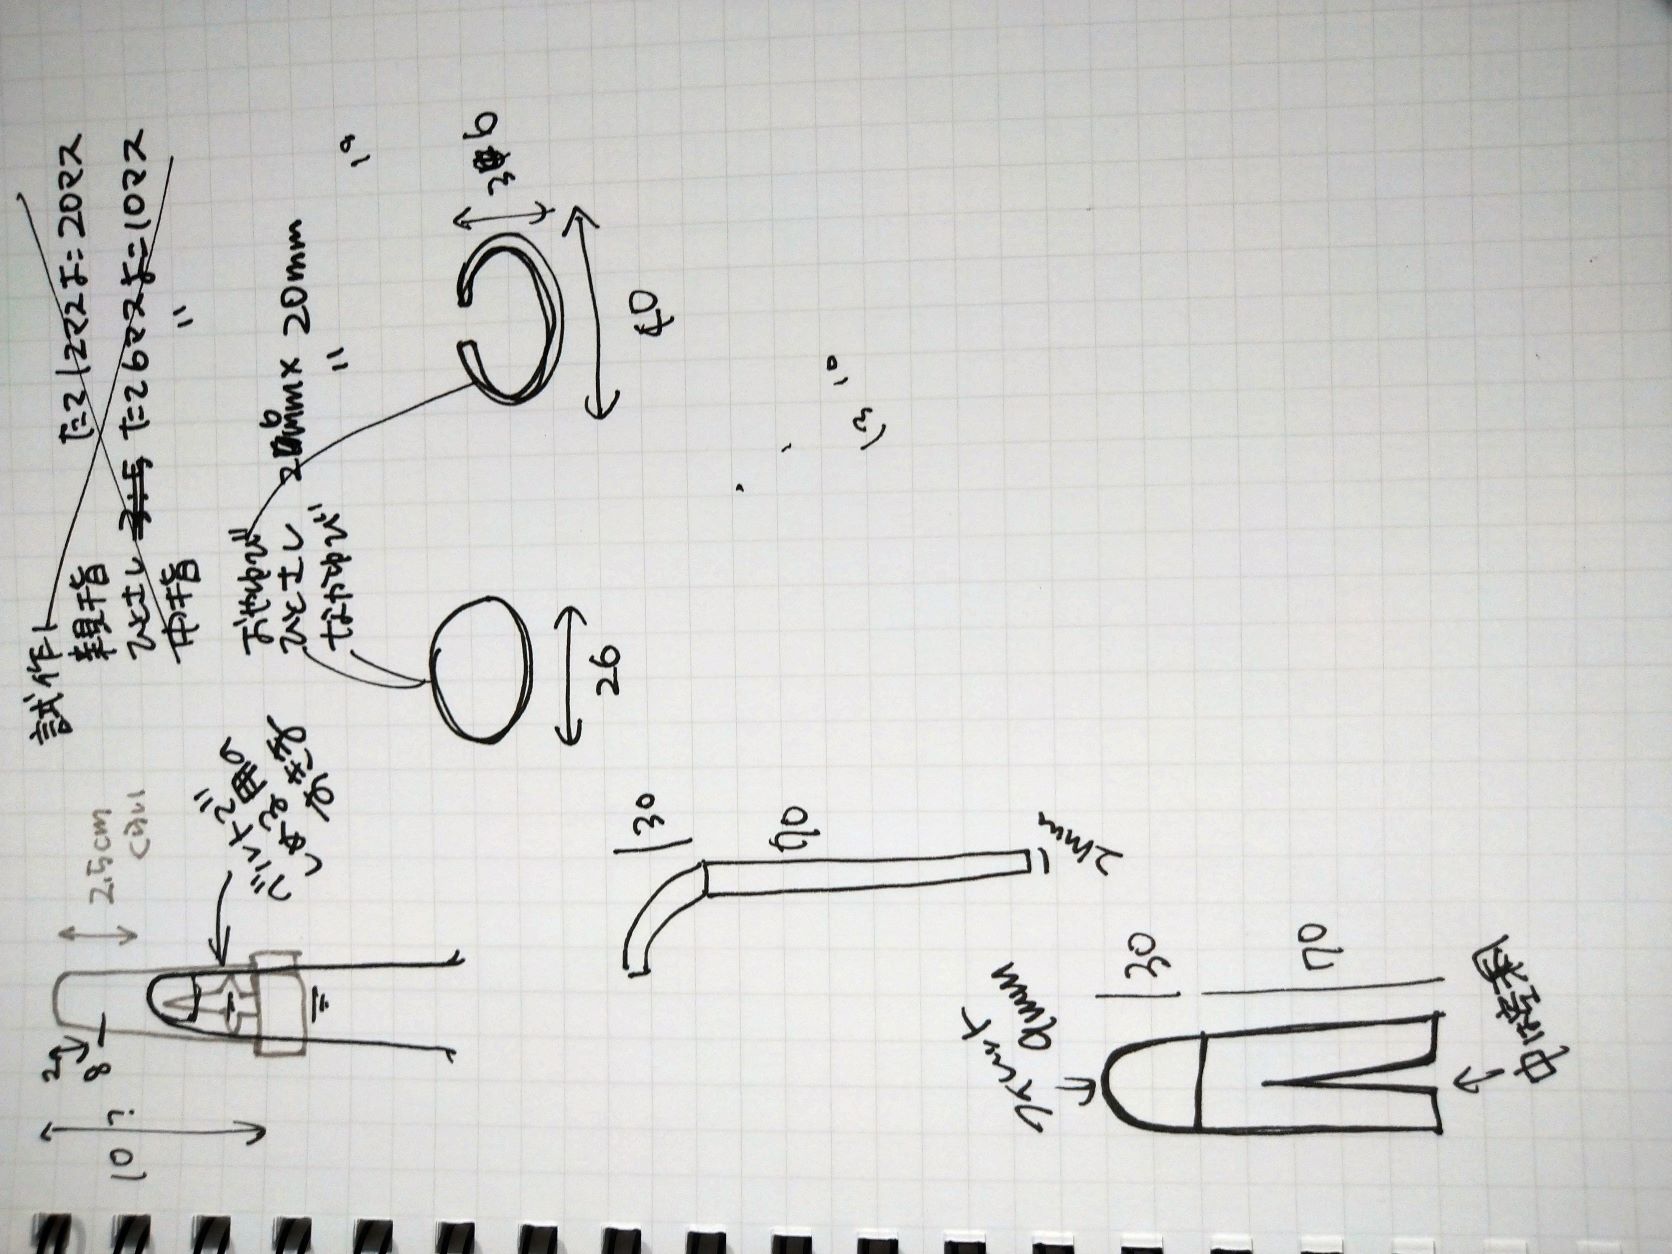 2
8
10 ?
2.5cm
くらい
ベルトで
しめる用の
すきま
試作1
親指 たて12マスよこ20マス
ひとさし 3:5 たて6マスよこ10マス
中指 〃
おやゆび
ひとさし 26mm× 20mm
なかゆび 〃
26
36
40
30
70
2mm
フィレット
9mm
30
70
中は空洞
13 10